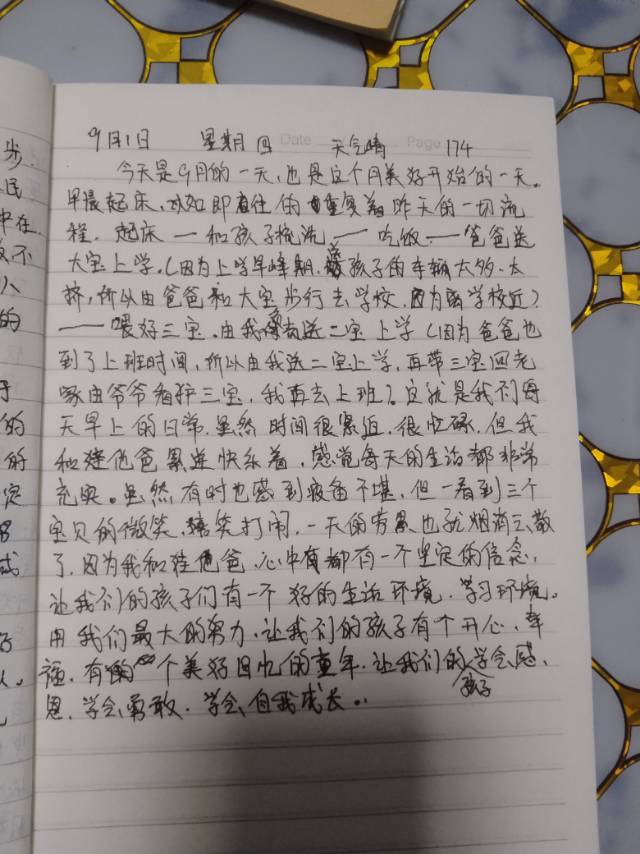 步
民
中在
不
八
的
9月1日 星期四 Date 天气晴 Page 174
今天是9月的一天,也是这个月美好开始的一天。
早晨起床,的重复着昨天的一切流
程。起床——和孩子梳洗——吃饭——爸爸送
大宝上学。(因为上学早峰期,孩子的车辆太多,太
挤,所以由爸爸和大宝步行去学校,因为离学校近)
——喂好三宝,由我送二宝上学(因为爸爸也
到了上班时间,所以由我送二宝上学,再带三宝回老
家由爷爷看护三宝,我再去上班)。这就是我们每
天早上的日常,虽然时间很紧迫,很忙碌,但我
和娃他爸累并快乐着,感觉每天的生活都非常
充实。虽然,有时也感到疲备不堪,但一看到三个
宝贝的微笑,嬉笑打闹,一天的劳累也就烟消云散
了,因为我和娃他爸心中都有一个坚定的信念,
让我们的孩子们有一个好的生活环境,学习环境。
用我们最大的努力,让我们的孩子有个开心、幸
福,有一个美好回忆的童年,让我们的孩子学会感
恩,学会勇敢,学会自我成长。